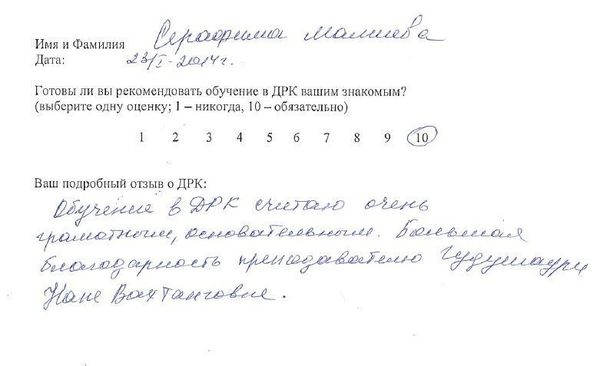 Имя и Фамилия Серафима Малиева
Дата: 23/I-2014г.
Готовы ли вы рекомендовать обучение в ДРК вашим знакомым?
(выберите одну оценку; 1 – никогда, 10 – обязательно)
1 2 3 4 5 6 7 8 9 10
Ваш подробный отзыв о ДРК:
Обучение в ДРК считаю очень
грамотным, основательным. Большая
благодарность преподавателю Гудушаури
Нане Вахтанговне.